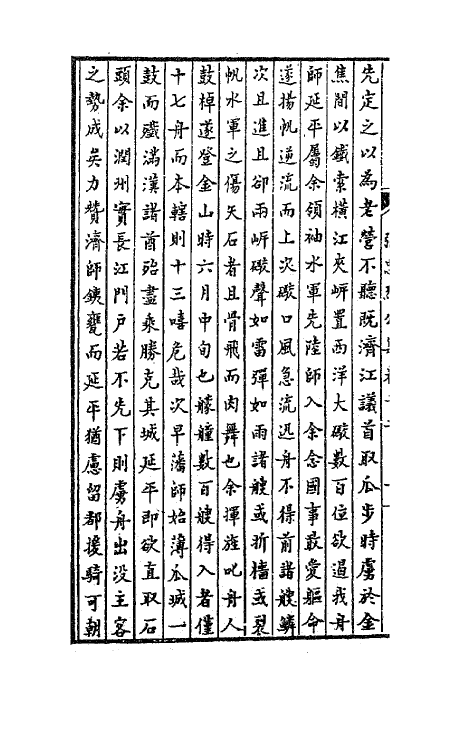 先定之以為老營不聽既濟江議首取瓜步時虜於金
焦間以鐵索橫江夾岸置西洋大礮數百位欲遏我舟
師延平屬余領袖水軍先陸師入余念國事最愛軀命
遂揚帆逆流而上次礮口風急流迅舟不得前諸艘鱗
次且進且卻兩岸礮聲如雷彈如雨諸艘或折檣或裂
帆水軍之傷矢石者且骨飛而肉舞也余揮旌叱舟人
鼓棹遂登金山時六月中旬也艨艟數百艘得入者僅
十七舟而本轄則十三嘻危哉次早藩師始薄瓜城一
鼓而殲滿漢諸酋殆盡乘勝克其城延平即欲直取石
頭余以潤州實長江門戶若不先下則虜舟出沒主客
之勢成矣力贊濟師鐵甕而延平猶慮留都援騎可朝